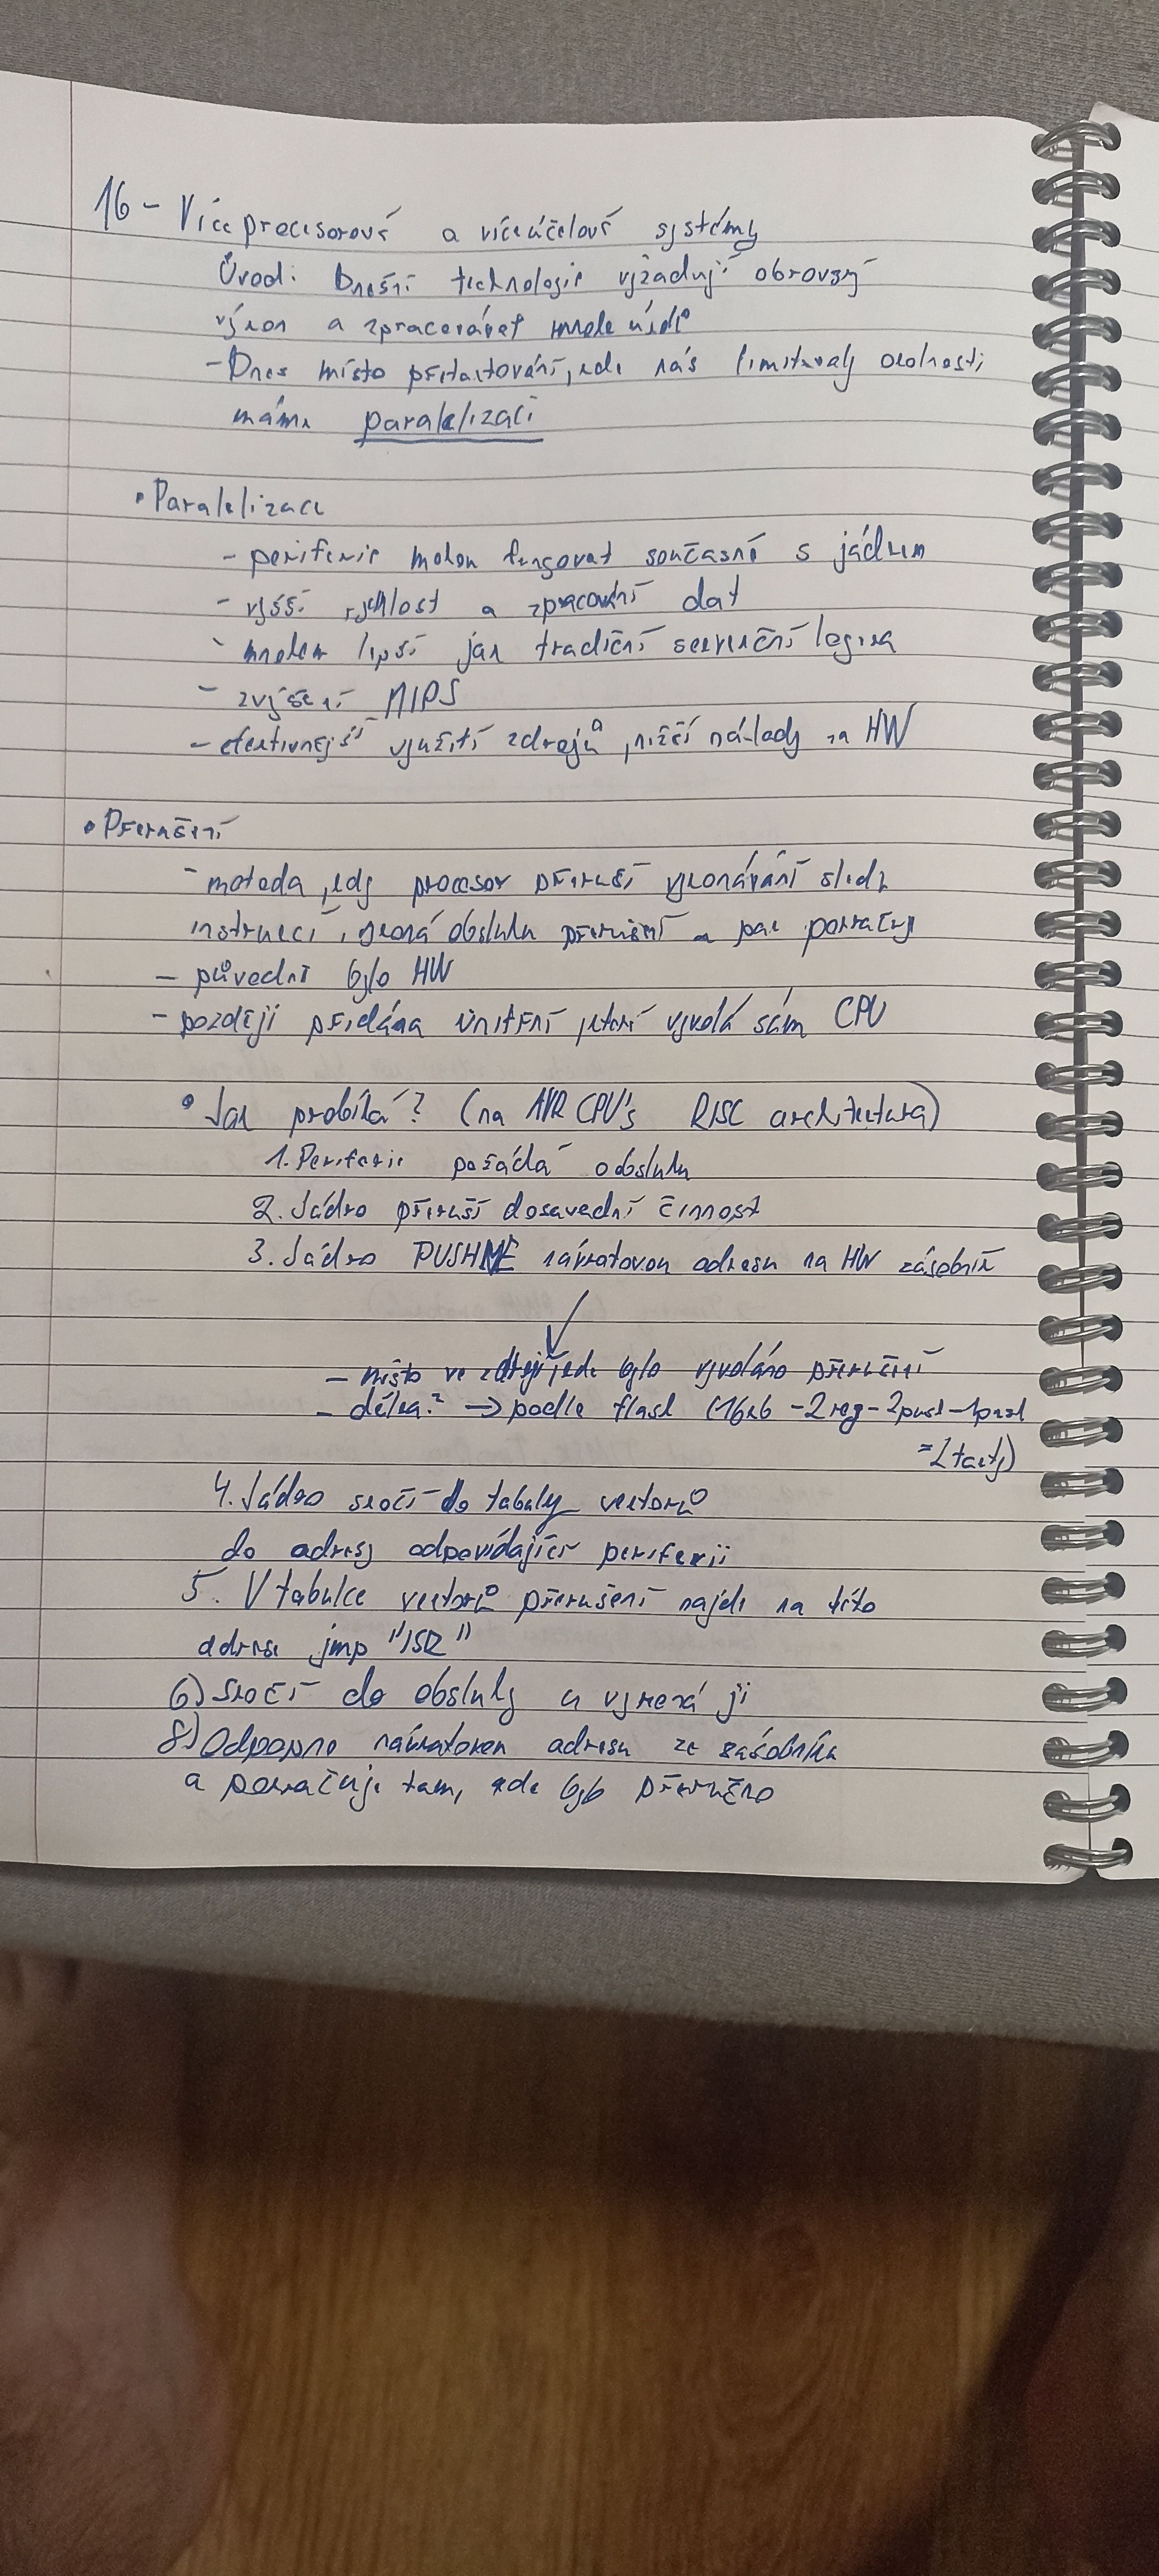 16 - Víceprocesorové a víceúčelové systémy
Úvod: Dnešní technologie vyžadují obrovský
výkon a zpracovávat mnoho údajů
- Dnes místo přetaktování, kde nás limitovaly okolnosti
máme paralelizaci
• Paralelizace
- periferie mohou fungovat současně s jádrem
- vyšší rychlost a zpracování dat
- mnohem lepší jak tradiční sekvenční logika
- zvýšení MIPS
- efektivnější využití zdrojů, nižší náklady na HW
• Přerušení
- metoda, kdy procesor přeruší vykonávání sledu
instrukcí, vykoná obsluhu přerušení a pak pokračuje
- původně bylo HW
- později přidána vnitřní, které vyvolá sám CPU
• Jak probíhá? (na AVR CPU's RISC architektura)
1. Periferie požádá o obsluhu
2. Jádro přeruší dosavadní činnost
3. Jádro PUSHNE návratovou adresu na HW zásobník
- místo ve zdroji kde bylo vyvoláno přerušení
- délka? → podle flash (16kb - 2reg - 2push - 1push
= 2 takty)
4. Jádro skočí do tabulky vektorů
do adresy odpovídající periferii
5. V tabulce vektorů přerušení najde na této
adrese jmp "ISR"
6) Skočí do obsluhy a vykoná ji
8) Odpopne návratovou adresu ze zásobníku
a pokračuje tam, kde bylo přerušeno